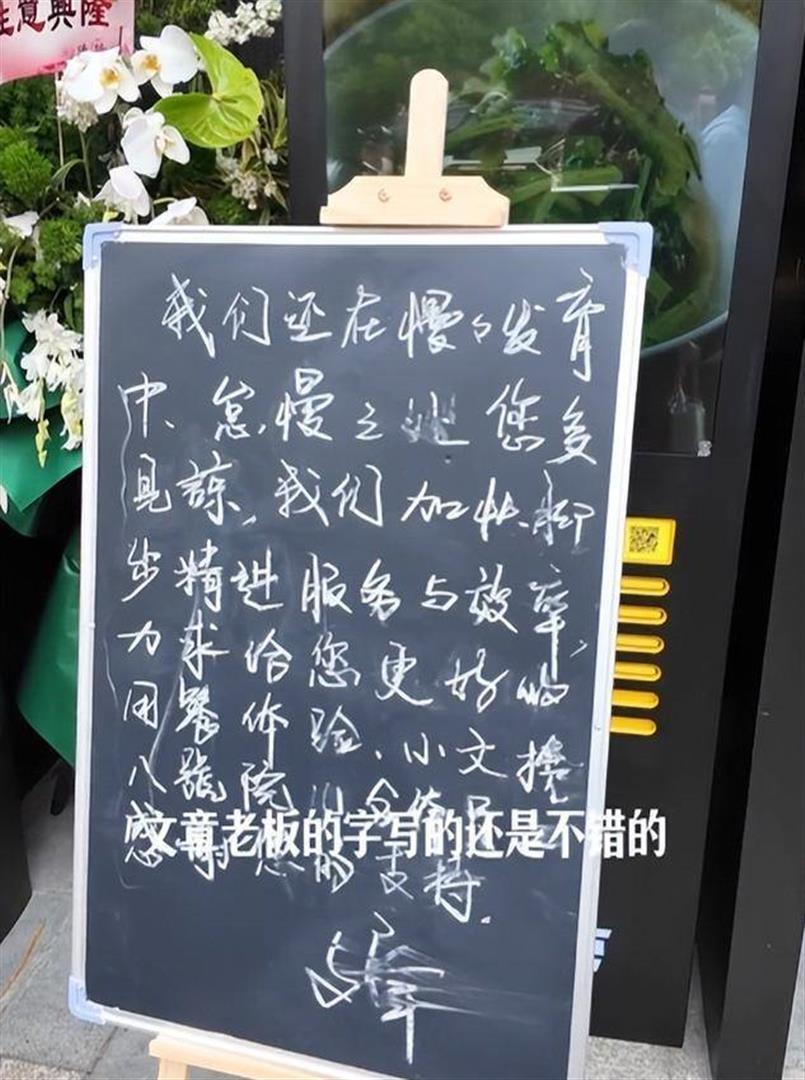 生意興隆
我们还在慢々发育
中、怠慢之处您多
见谅,我们加快脚
步精进服务与效率,
力求给您更好的
用餐体验、小文携
八號院儿全体
感谢您的支持.
文章老板的字写的还是不错的